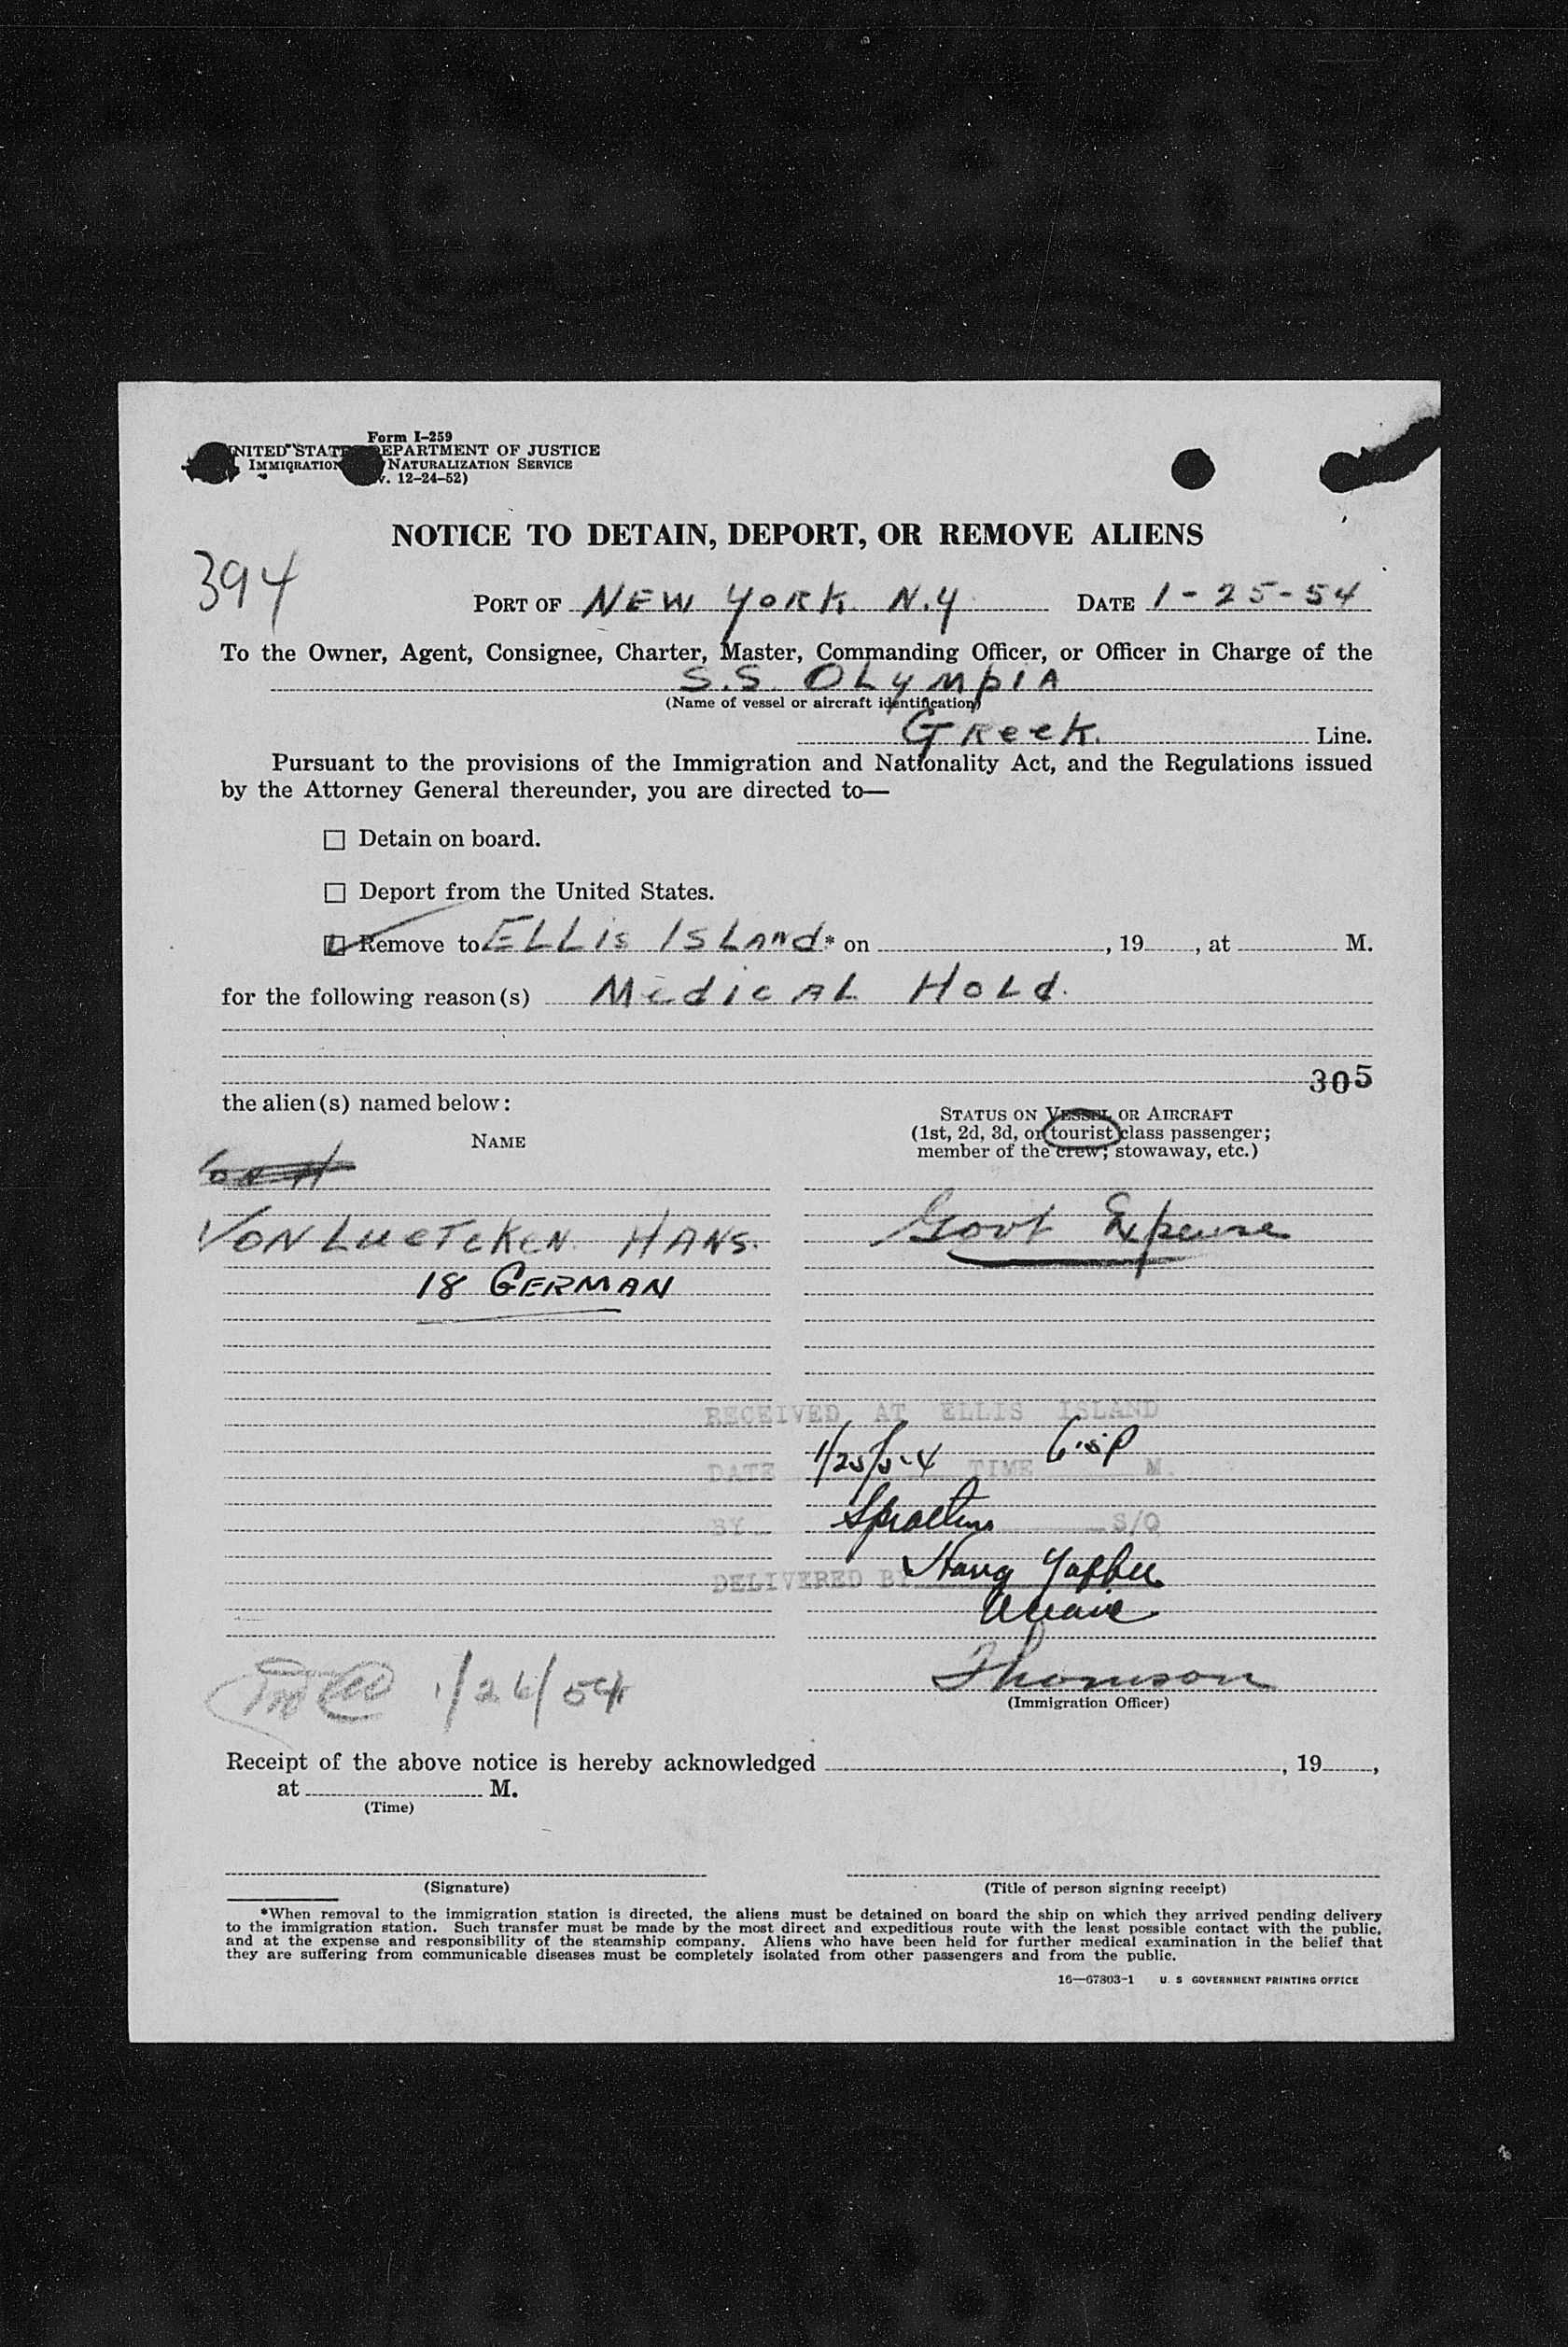 Form I-259
UNITED STATES DEPARTMENT OF JUSTICE
IMMIGRATION NATURALIZATION SERVICE
v. 12-24-52)
NOTICE TO DETAIN, DEPORT, OR REMOVE ALIENS
394
PORT OF NEW YORK N.Y DATE 1-25-54
To the Owner, Agent, Consignee, Charter, Master, Commanding Officer, or Officer in Charge of the
S.S. OLYMPIA
(Name of vessel or aircraft identification)
Greek Line.
Pursuant to the provisions of the Immigration and Nationality Act, and the Regulations issued
by the Attorney General thereunder, you are directed to—
Detain on board.
Deport from the United States.
Remove to ELLIS ISLAND* on , 19 , at M.
for the following reason(s) Medical Hold
305
the alien(s) named below:
NAME
STATUS ON VESSEL OR AIRCRAFT
(1st, 2d, 3d, or tourist class passenger;
member of the crew; stowaway, etc.)
VON LUETCKEN HANS. Govt Expense
18 GERMAN
RECEIVED AT ELLIS ISLAND
DATE 1/25/54 TIME M.
BY S/O
DELIVERED BY
1/26/54
Thomson
(Immigration Officer)
Receipt of the above notice is hereby acknowledged , 19 ,
at M.
(Time)
(Signature) (Title of person signing receipt)
*When removal to the immigration station is directed, the aliens must be detained on board the ship on which they arrived pending delivery
to the immigration station. Such transfer must be made by the most direct and expeditious route with the least possible contact with the public,
and at the expense and responsibility of the steamship company. Aliens who have been held for further medical examination in the belief that
they are suffering from communicable diseases must be completely isolated from other passengers and from the public.
16—67803-1 U. S GOVERNMENT PRINTING OFFICE